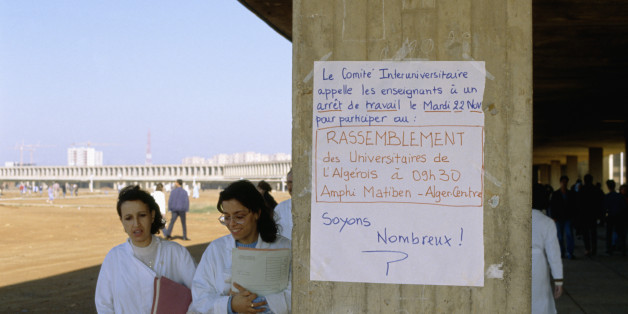 Le Comité Interuniversitaire
appelle les enseignants à un
arrêt de travail le Mardi 22 Nov
pour participer au :
RASSEMBLEMENT
des Universitaires de
L'Algérois à 09h30
Amphi Matiben - Alger-Centre
Soyons
Nombreux !